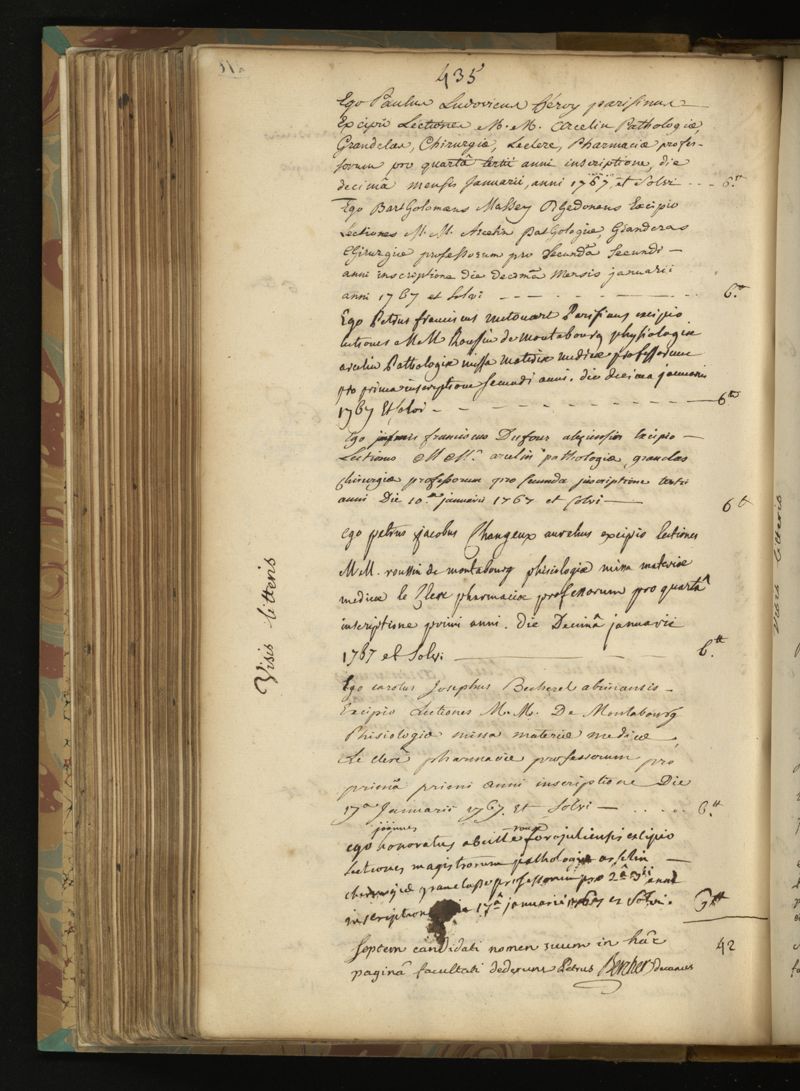 435
Ego Paulus Ludovicus Géroy parisinus
Excipio Lectiones M. M. Arcelin Pathologiæ,
Grandclas, Chirurgiæ, Leclere, Pharmaciæ profes-
sorum pro quartâ tertii anni inscriptione, die
decimâ mensis Januarii, anni 1767, et Solvi ... 6.tt
Ego Bartholomæus Massey Rhedonens Excipio
Lectiones M. M. Arcelin pathologiæ, Grandclas
Chirurgiæ professorum pro secundâ secundi —
anni inscriptione die decimâ Mensis januarii
anni 1767 et solvi — — — 6.tt
Ego Petrus franciscus Parisinus excipio
lectiones M M Roussin de montabourg physiologiæ
arcelin Pathologiæ missa materiæ medicæ professorum
pro prima inscriptione secundi anni. die decima januarii
1767 Et solvi — — — 6tt
Ego franciscus Dufour Excipio —
Lectiones M M. arcelin pathologiæ, grandclas
chirurgiæ professorum pro secunda inscriptione tertii
anni Die 10.a januarii 1767 et solvi — 6tt
Ego petrus jacobus Changeux aurelius excipio lectiones
MM. roussin de montabourg phisiologiæ missa materiæ
medicæ le Clerc pharmaciæ professorum pro quartâ
inscriptione primi anni. die Decimâ januarii
1767 et Solvi — 6.tt
Visis litteris
Ego carolus Josephus Becherel abrincensis —
Excipio Lectiones M. M. De Montabourg
Phisiologiæ missa materiæ medicæ —
Le clerc pharmaciæ professorum pro
primâ primi anni inscriptione Die
17a Januarii 1767. Et Solvi — ... 6.tt
joannes
ego honoratus abeille forojuliensis excipio
Lectiones magistrorum pathologiæ arselin —
chirurgiæ grandclas professorum pro 2a 3ii anni
inscriptione 17a januarii 1767 et Solvi. 6tt
Septem candidati nomen suum in hâc 42
paginâ facultati dederunt Petrus Bercher Decanus
Visis litteris